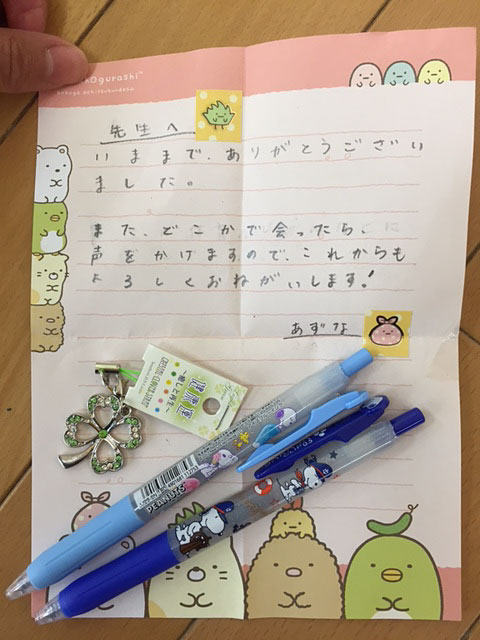 ogurashi™
先生へ
いままで、ありがとうござい
ました。
また、どこかで会ったら、
声をかけますので、これからも
よろしくおねがいします!
あずな
健康運
PEANUTS